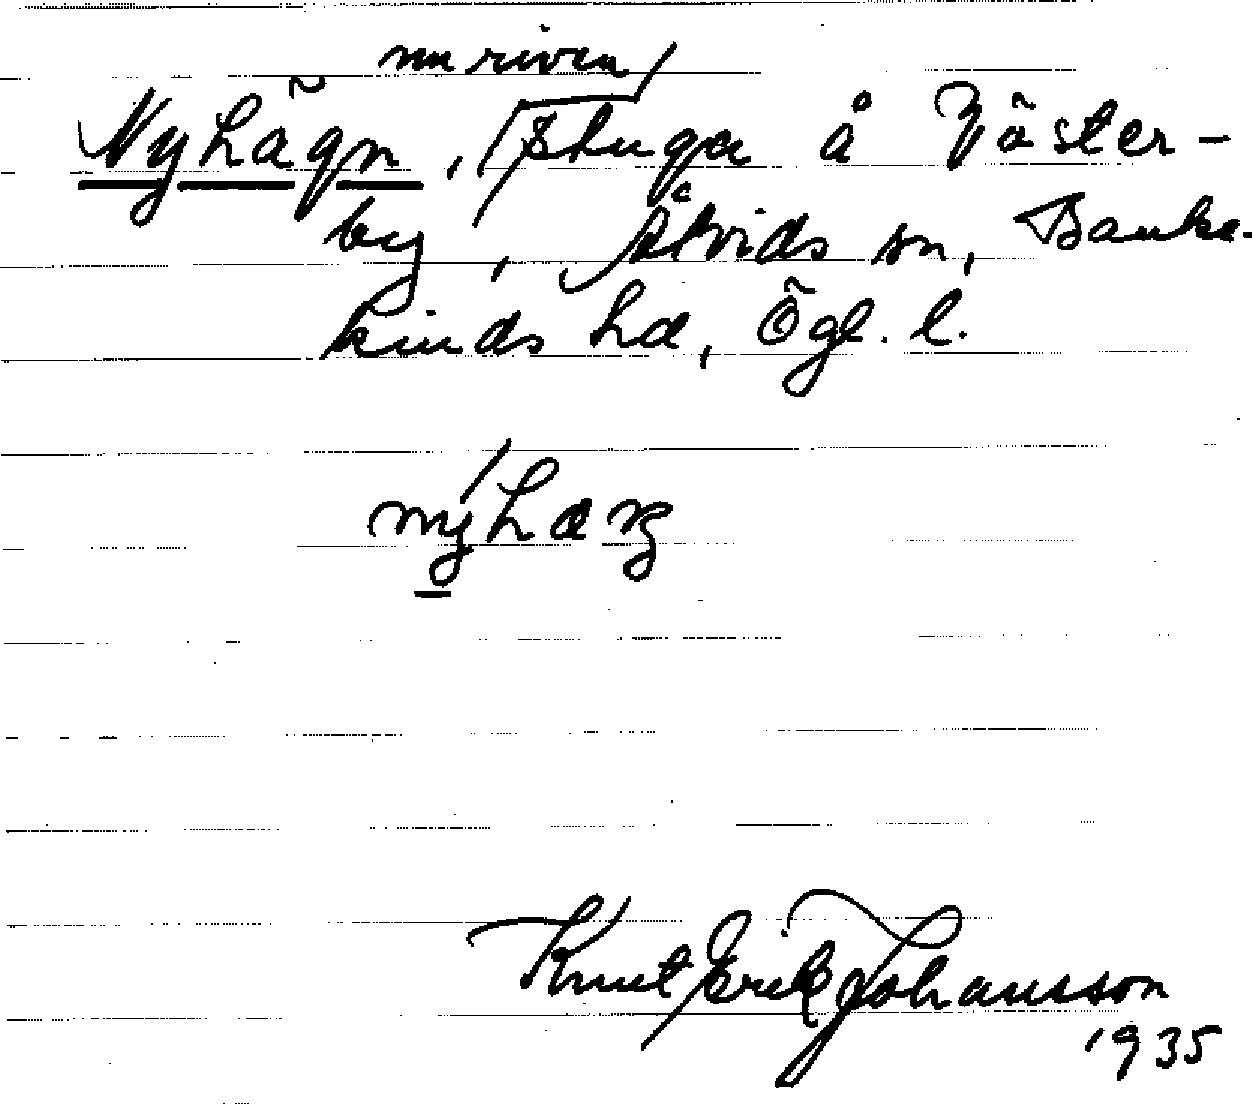 nu riven
Nyhägn, stuga å Väster-
by, Åtvids sn, Banke-
kinds hd, Ögl. l.
Knut Erik Johansson
1935